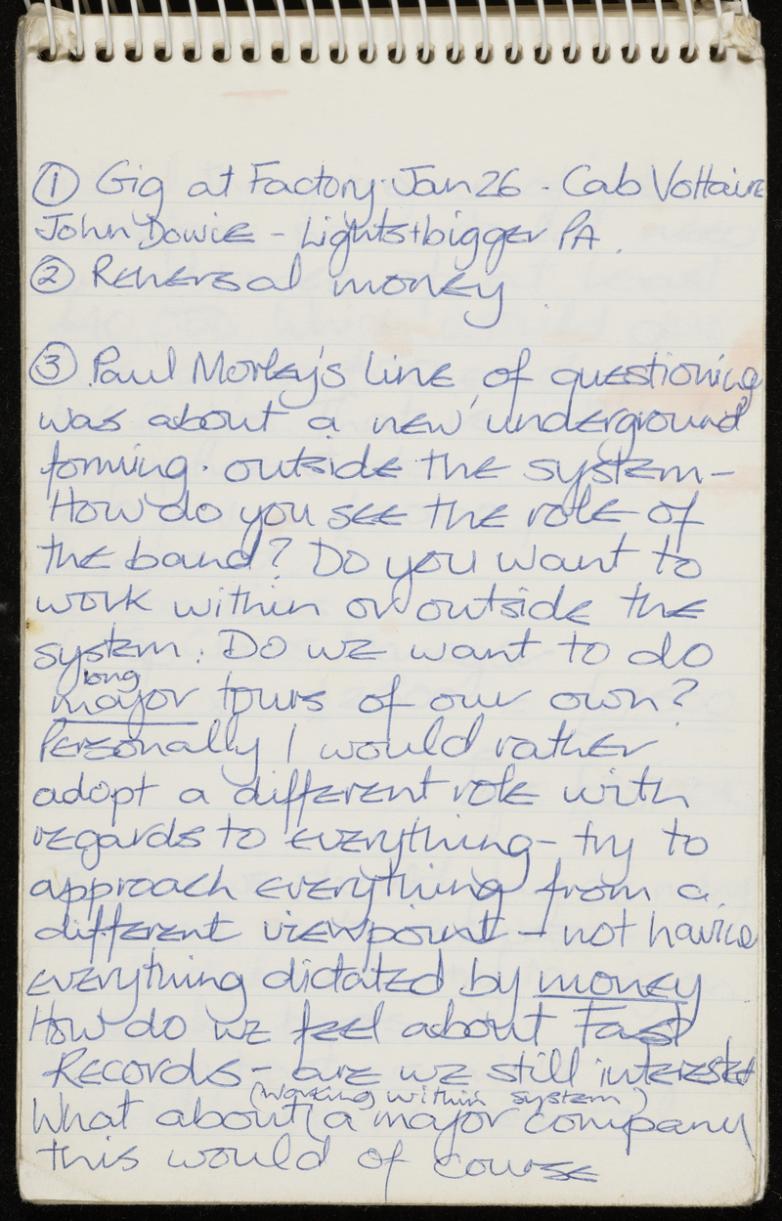 ① Gig at Factory. Jan 26 - Cab Voltaire
John Dowie - Lights + bigger PA.
② Rehersal money
③ Paul Morley's line of questioning
was about a new 'underground'
forming. outside the system -
How do you see the role of
the band? Do you want to
work within or outside the
system. Do we want to do
long
major tours of our own?
Personally I would rather
adopt a different role with
regards to everything - try to
approach everything from a
different viewpoint - not having
everything dictated by money
How do we feel about Fast
Records - are we still interested
(working within system)
What about a major company
this would of course